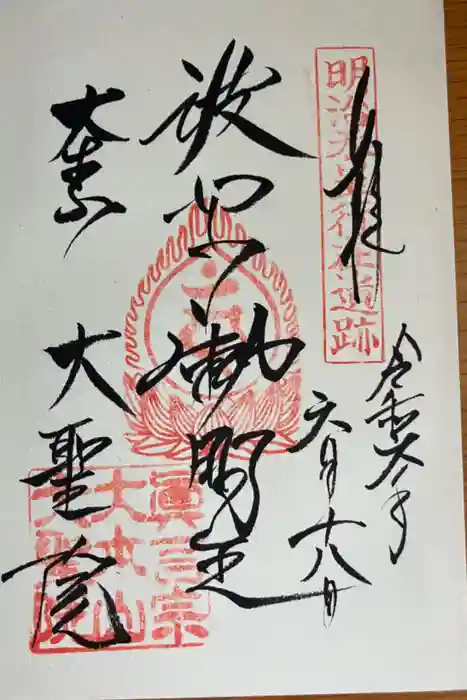 奉拝
明治天皇行在遺跡
令和六年
六月十八日
波切不動明王
大本山
大聖院
眞言宗
大本山
大聖院